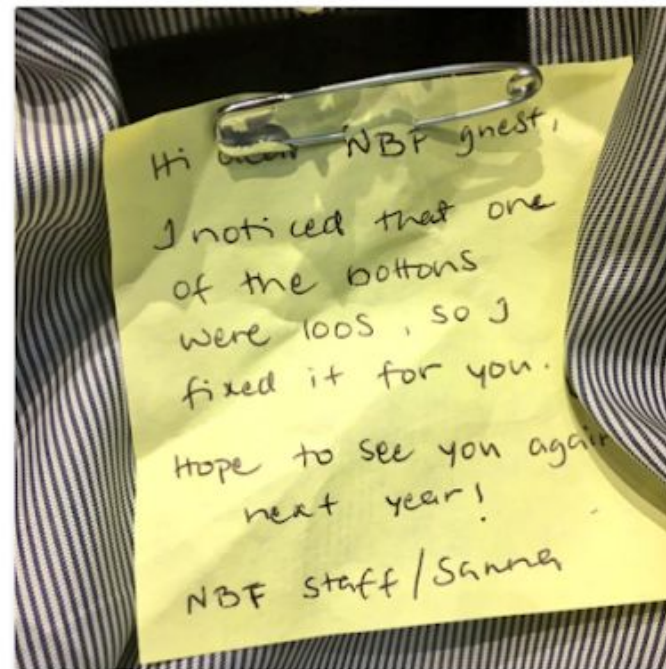 Hi dear NBF guest,
I noticed that one
of the bottons
were loos, so I
fixed it for you.
Hope to see you again
next year!
NBF staff/Sanna